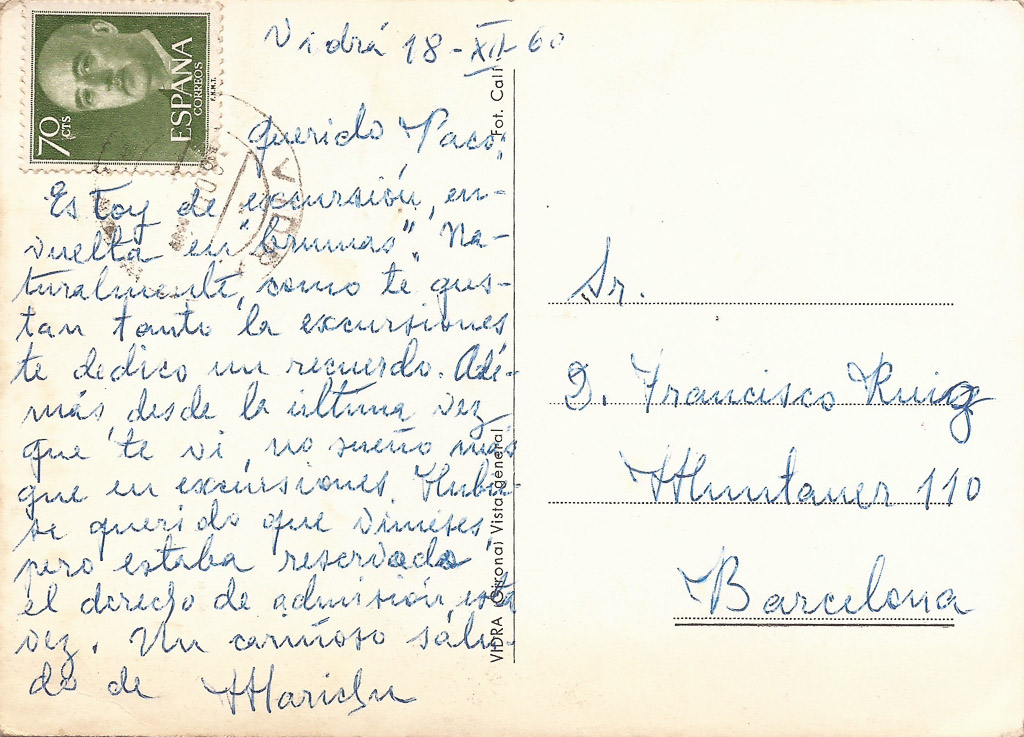 70 CTS
ESPAÑA
CORREOS
F.N.M.T.
Vidrá 18-XII-60
querido Paco:
Estoy de excursión, en-
vuelta en "brumas". Na-
turalmente, como te gus-
tan tanto la excursiones
te dedico un recuerdo. Adé-
más, desde la última vez
que te vi, no sueño más
que en excursiones. Hubie-
se querido que vinieses,
pero estaba reservado
el derecho de admisión esta
vez. Un cariñoso salu-
do de Marichu
VIDRA (Girona) Vista general
Fot. Cali
Sr.
D. Francisco Ruiz
Muntaner 110
Barcelona